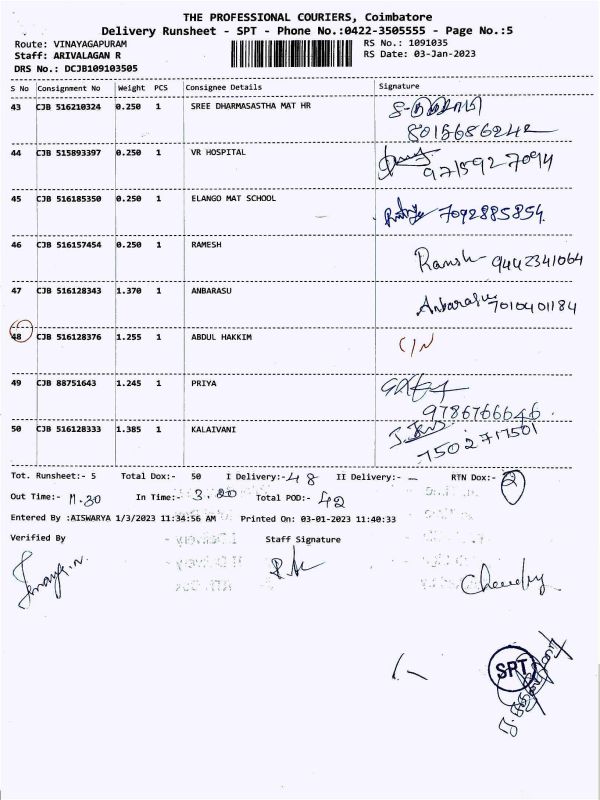 THE PROFESSIONAL COURIERS, Coimbatore
Delivery Runsheet - SPT - Phone No.:0422-3505555 - Page No.:5
Route: VINAYAGAPURAM
RS No.: 1091035
Staff: ARIVALAGAN R
RS Date: 03-Jan-2023
DRS No.: DCJB109103505
S No Consignment No Weight PCS Consignee Details Signature
43 CJB 516210324 0.250 1 SREE DHARMASASTHA MAT HR
8015686242
44 CJB 515893397 0.250 1 VR HOSPITAL
9715927094
45 CJB 516185350 0.250 1 ELANGO MAT SCHOOL
7092885854
46 CJB 516157454 0.250 1 RAMESH
9442341064
47 CJB 516128343 1.370 1 ANBARASU
Anbarasu 7010401184
48 CJB 516128376 1.255 1 ABDUL HAKKIM C/N
49 CJB 88751643 1.245 1 PRIYA
9786766646
50 CJB 516128333 1.385 1 KALAIVANI
7502717501
Tot. Runsheet:- 5 Total Dox:- 50 I Delivery:- 48 II Delivery:- - RTN Dox:- 2
Out Time:- 11.30 In Time:- 3.20 Total POD:- 42
Entered By :AISWARYA 1/3/2023 11:34:56 AM Printed On: 03-01-2023 11:40:33
Verified By Staff Signature
SPT